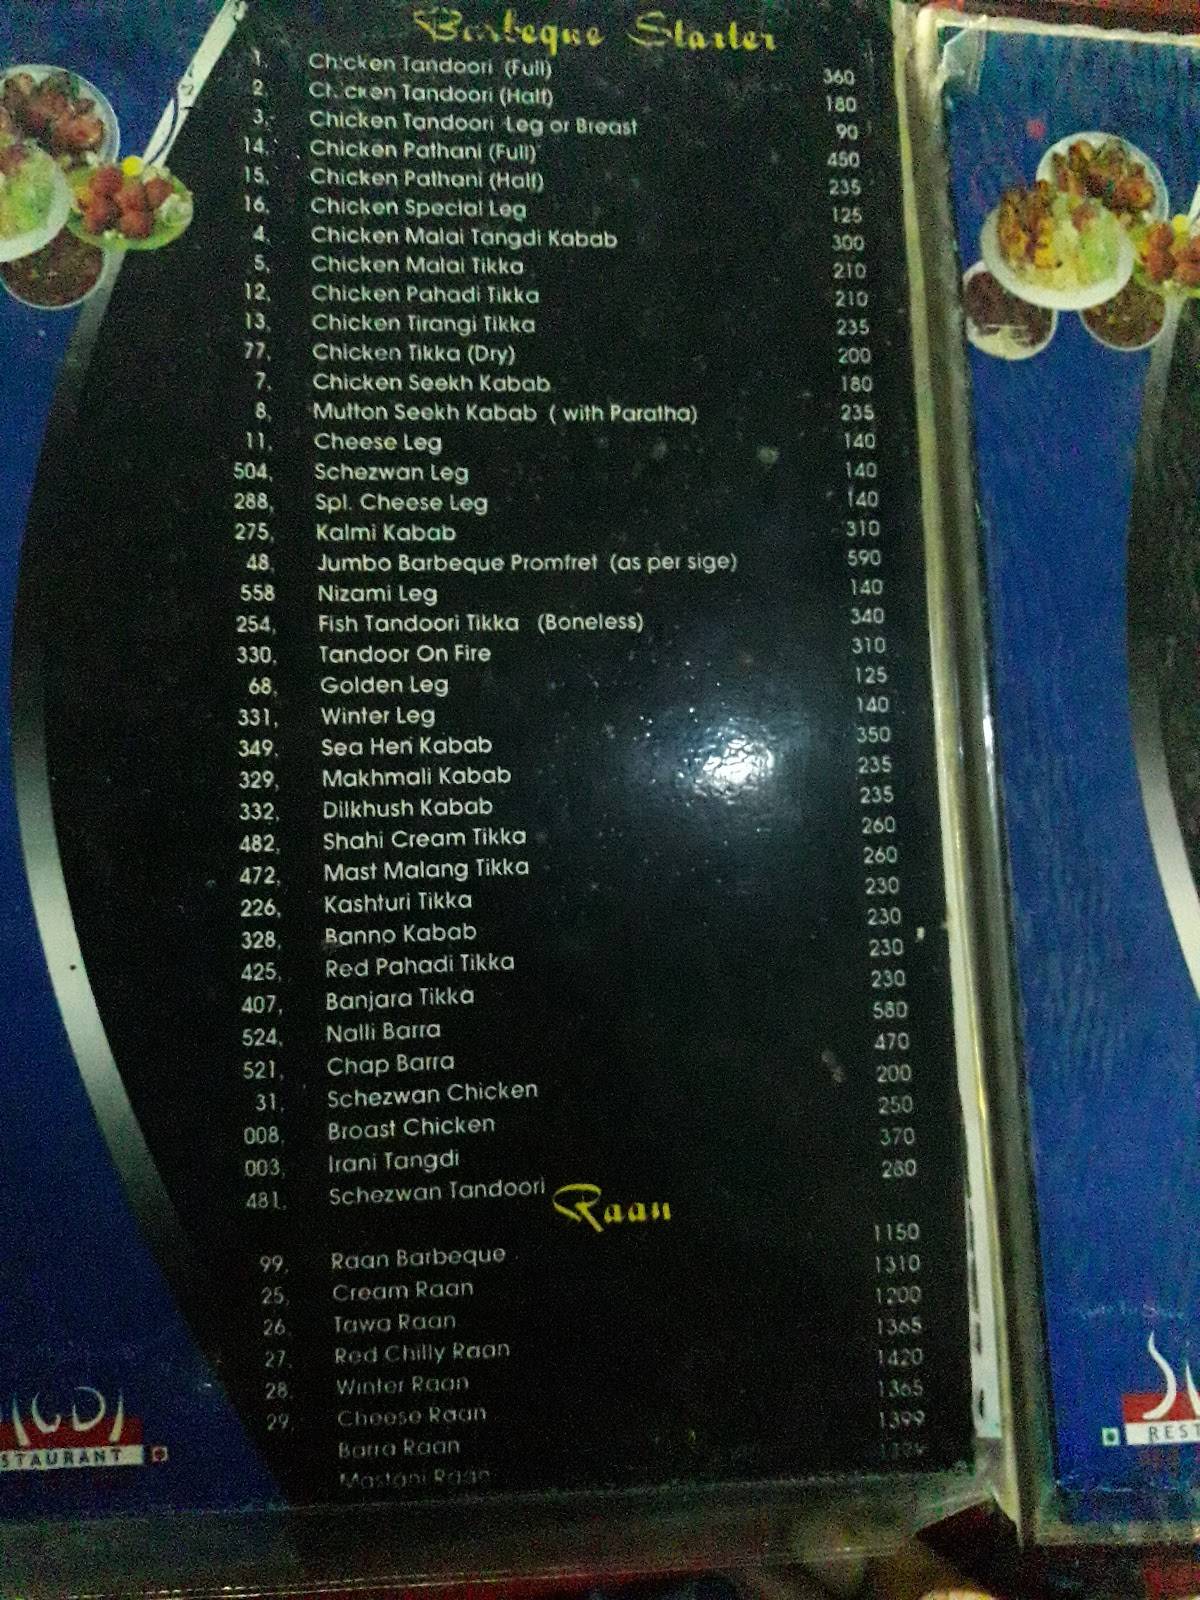 Barbeque Starter
1. Chicken Tandoori (Full) 360
2. Chicken Tandoori (Half) 180
3. Chicken Tandoori Leg or Breast 90
14. Chicken Pathani (Full) 450
15. Chicken Pathani (Half) 235
16. Chicken Special Leg 125
4. Chicken Malai Tangdi Kabab 300
5. Chicken Malai Tikka 210
12. Chicken Pahadi Tikka 210
13. Chicken Tirangi Tikka 235
77. Chicken Tikka (Dry) 200
7. Chicken Seekh Kabab 180
8. Mutton Seekh Kabab ( with Paratha) 235
11. Cheese Leg 140
504. Schezwan Leg 140
288. Spl. Cheese Leg 140
275. Kalmi Kabab 310
48. Jumbo Barbeque Promfret (as per sige) 590
558 Nizami Leg 140
254. Fish Tandoori Tikka (Boneless) 340
330. Tandoor On Fire 310
68. Golden Leg 125
331. Winter Leg 140
349. Sea Hen Kabab 350
329. Makhmali Kabab 235
332. Dilkhush Kabab 235
482. Shahi Cream Tikka 260
472. Mast Malang Tikka 260
226. Kashturi Tikka 230
328. Banno Kabab 230
425. Red Pahadi Tikka 230
407. Banjara Tikka 230
524. Nalli Barra 580
521. Chap Barra 470
31. Schezwan Chicken 200
008. Broast Chicken 250
003. Irani Tangdi 370
481. Schezwan Tandoori 280
Raan
99. Raan Barbeque 1150
25. Cream Raan 1310
26. Tawa Raan 1200
27. Red Chilly Raan 1365
28. Winter Raan 1420
29. Cheese Raan 1365
Barra Raan 1399
Mastani Raan
RESTAURANT
REST